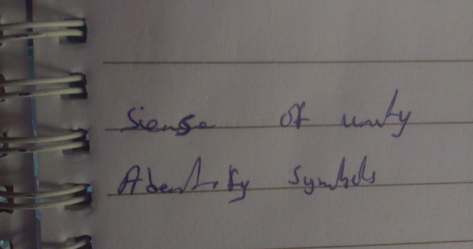 Siense of unity
Identity symbols